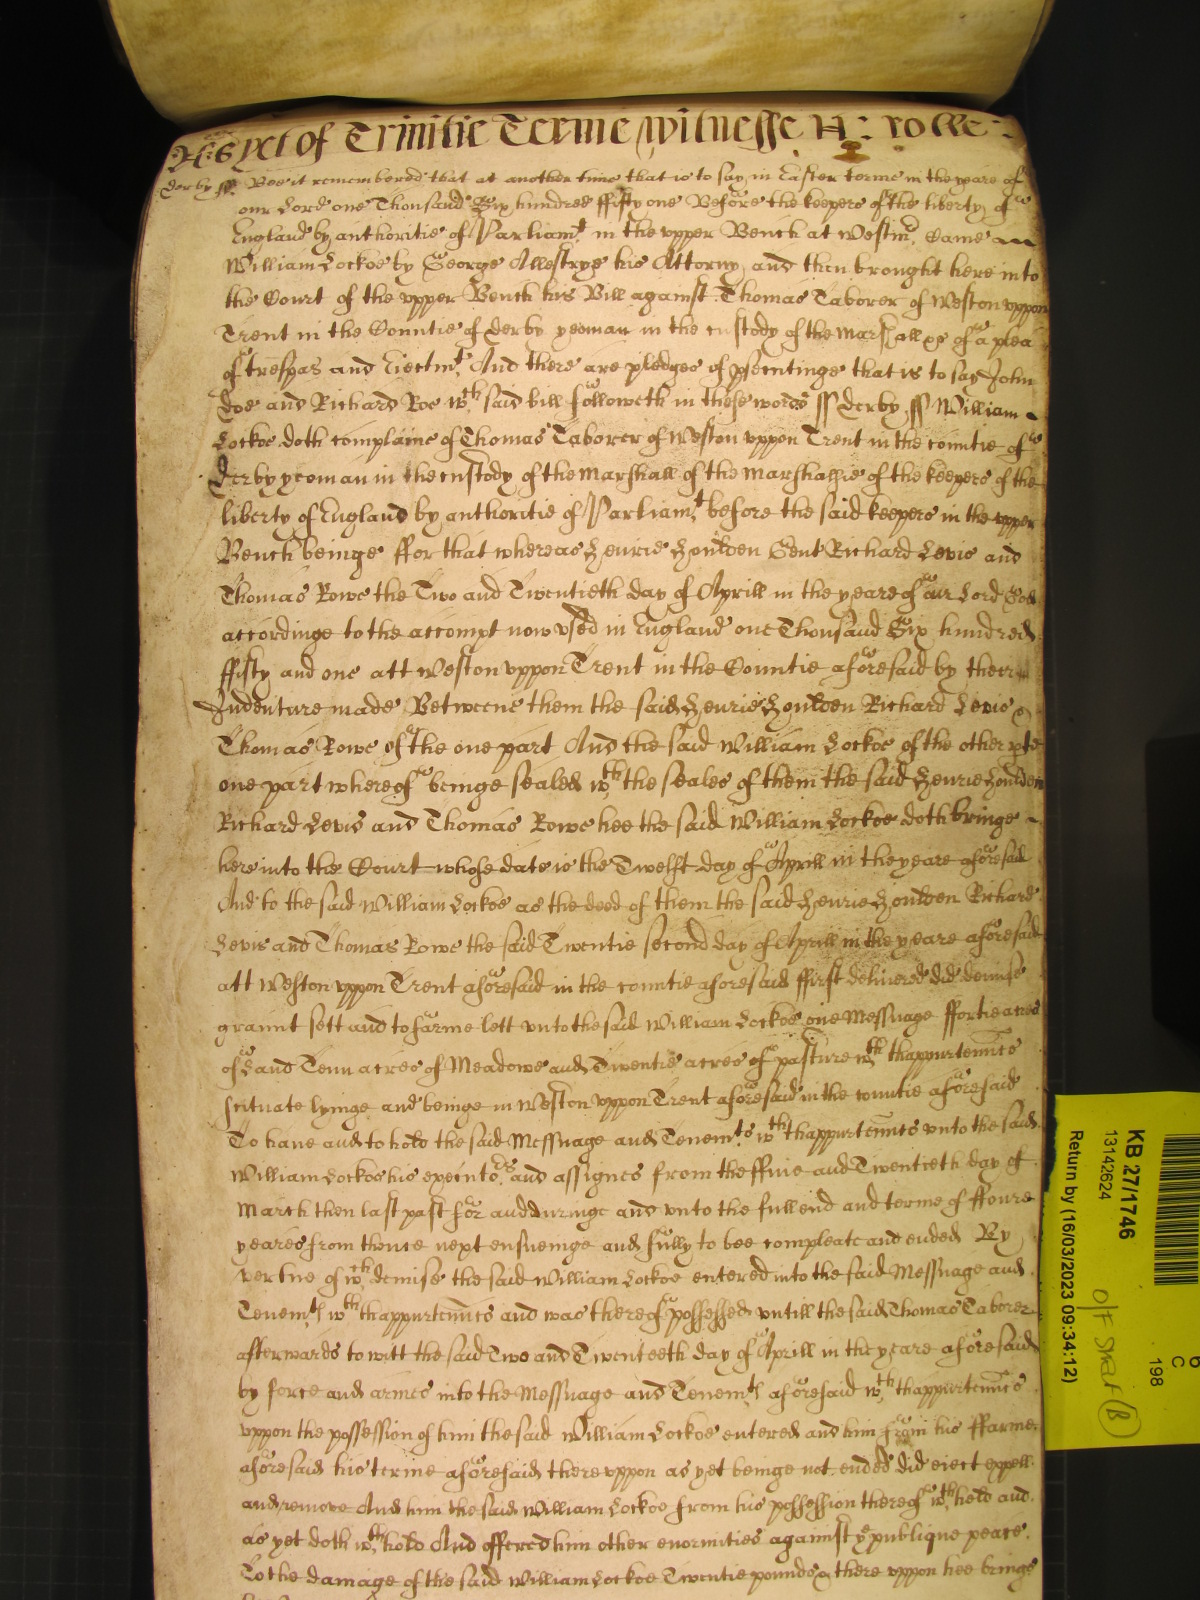 As yet of Trinitie Terme witnesse H: Rolle:
derby ss. Bee it remembered that at another time that is to say in Easter terme in the yeare of
our Lord one Thousand Six hundred ffifty one Before the keepers of the liberty of
England by authoritie of Parliamt. in the vpper Bench at Westmr. Came
William Lockoe by George Allestrye his Attorny, and then brought here into
the Court of the vpper Bench his Bill against Thomas Taborer of Weston vppon
Trent in the Countie of derby yeoman in the custody of the Marshall &c of a plea
of trespas and Eiectmt. And there are pledges of psecutinge that is to say John
Doe and Richard Roe wch. said bill followeth in these words ss derby ss William
Lockoe doth complaine of Thomas Taborer of Weston vppon Trent in the countie of
Derby yeoman in the custody of the Marshall of the Marshallsie of the keepers of the
liberty of England by authoritie of Parliamt. before the said keepers in the vpper
Bench beinge ffor that whereas Henrie Houlden Gent Richard Levis and
Thomas Rowe the Two and Twentieth day of Aprill in the yeare of our Lord God
accordinge to the accompt now vsed in England one Thousand Six hundred
ffifty and one att Weston vppon Trent in the Countie aforesaid by their
Indenture made Betweene them the said Henrie Houlden Richard Levis &
Thomas Rowe of the one part And the said William Lockoe of the other pte
one part whereof beinge sealed wth. the seales of them the said Henrie Houlden
Richard Levis and Thomas Rowe hee the said William Lockoe doth bringe
here into the Court whose date is the Twelft day of Aprill in the yeare aforesaid
And to the said William Lockoe as the deed of them the said Henrie Houlden Richard
Levis and Thomas Rowe the said Twentie second day of Aprill in the yeare aforesaid
att Weston vppon Trent aforesaid in the countie aforesaid ffirst delivered did demise
graunt sett and to farme lett vnto the said William Lockoe one Messuage ffortie acres
of Land Tenn acres of Meadowe and Twentie acres of pasture wth. thappurtennces
scituate lyinge and beinge in Weston vppon Trent aforesaid in the countie aforesaid
To haue and to hold the said Messuage and Tenemts. wth. thappurtennces vnto the said
William Lockoe his executors. and assignes from the ffiue and Twentieth day of
March then last past for and duringe and vnto the full end and terme of ffoure
yeares from thence next ensueinge and fully to bee compleate and ended By
vertue of wch. demise the said William Lockoe entered into the said Messuage and
Tenemts. wth. thappurtennces and was thereof possessed vntill the said Thomas Taborer
afterwards to witt the said Two and Twenteeth day of Aprill in the yeare aforesaid
by force and armes into the Messuage and Tenemts. aforesaid wth. thappurtennces
vppon the possession of him the said William Lockoe entered and him from his ffarme
aforesaid his terme aforesaid there vppon as yet beinge not ended did eiect expell
and remove And him the said William Lockoe from his possession thereof wth.held and
as yet doth wth.hold And offered him other enormities against ye publique peace.
To the damage of the said William Lockoe Twentie pounds & there vppon hee brings
KB 27/1746
13142624
Return by (16/03/2023 09:34:12)
O/F Shelf (B)
C
198